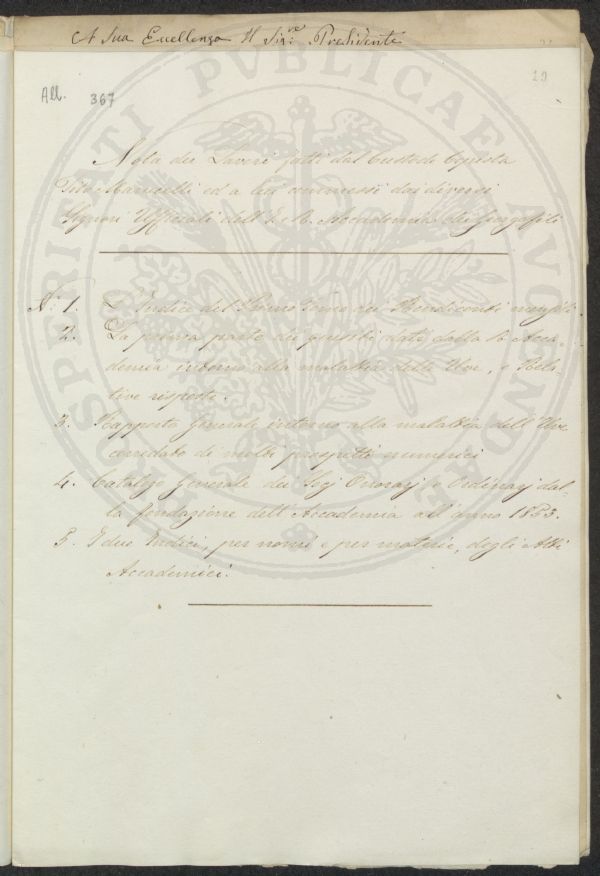 A Sua Eccellenza Il Sig:re Presidente
29
All. 367
PROSPERITATI PUBLICAE AUGENDAE
Nota dei Lavori fatti dal Custode Copista
Tito Marucelli ed a lui commessi dai diversi
Signori Ufficiali dell' I. e R. Accademia dei Georgofili
N.° 1. L'Indice del Primo Tomo dei Rendiconti
2. La prima parte dei quesiti dati dalla R. Acca-
demia intorno alla malattia delle Uve, e Rela-
tive risposte.
3. Rapporto Generale intorno alla malattia dell'Uve
corredato di molti prospetti numerici
4. Catalogo Generale dei Socj Onorarj e Ordinarj dal-
la fondazione dell'Accademia all'anno 1853.
5. I due Indici, per nomi e per materie, degli Atti
Accademici.